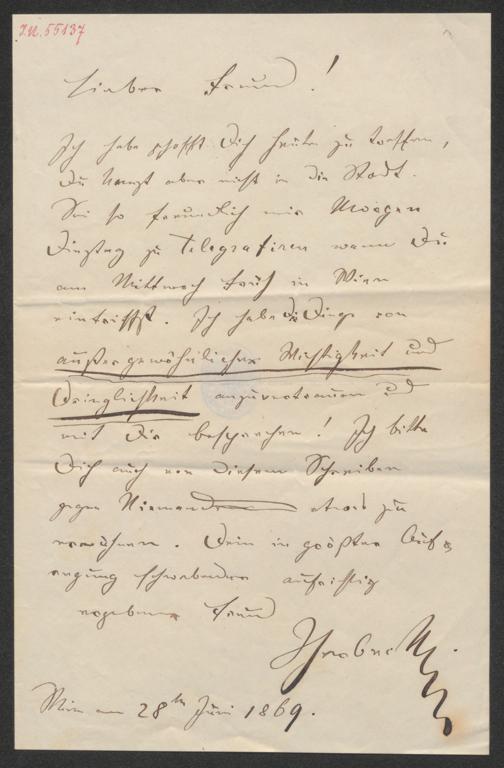 I.N. 55137
Lieber Freund!
Ich habe gehofft Dich heute zu treffen,
Du kamst aber nicht in die Stadt.
Sei so freundlich mir Morgen
Dienstag zu Telegrafiren wann Du
am Mittwoch früh in Wien
eintriffst. Ich habe Dir Dinge von
außergewöhnlicher Wichtigkeit und
Dringlichkeit anzuvertrauen und
mit Dir besprechen! Ich bitte
Dich auch von diesem Schreiben
gegen Niemand etwas zu
erwähnen. Dein in größter Auf-
regung schwebender aufrichtig
ergebener Freund
Wien am 28ten Juni 1869.